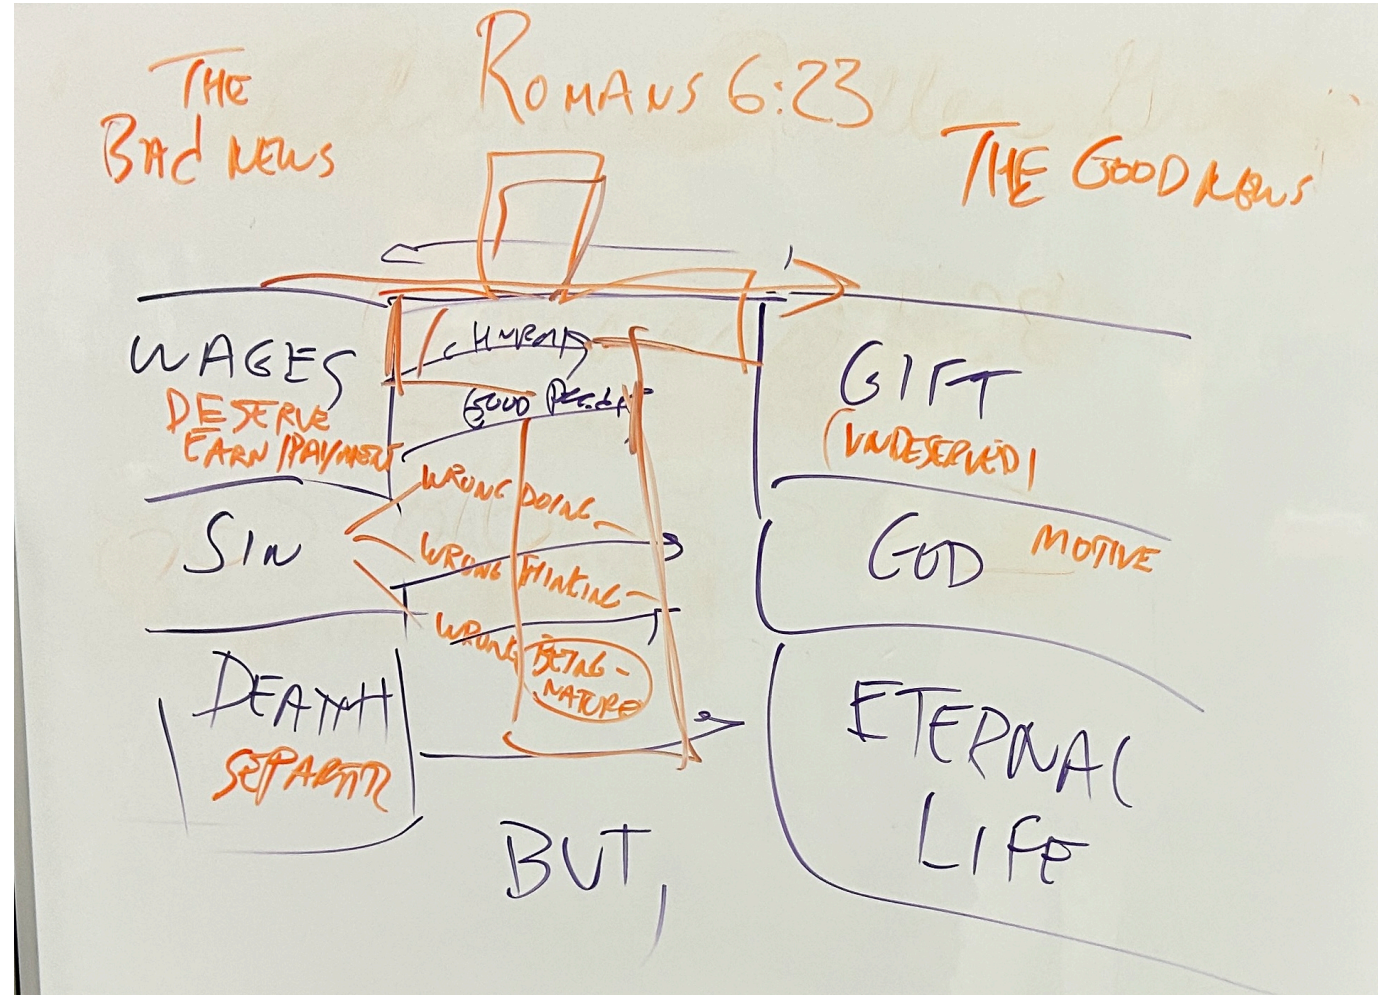 THE
BAd NEWS
ROMANS 6:23
THE GOOD NEWS
WAGES
DESERVE
EARN/PAYMENT
SIN
DEATH
CHURCH
GOOD
WRONG DOING
WRONG THINKING
WRONG BEING-
NATURE
BUT,
GIFT
(UNDESERVED)
GOD MOTIVE
ETERNAL
LIFE